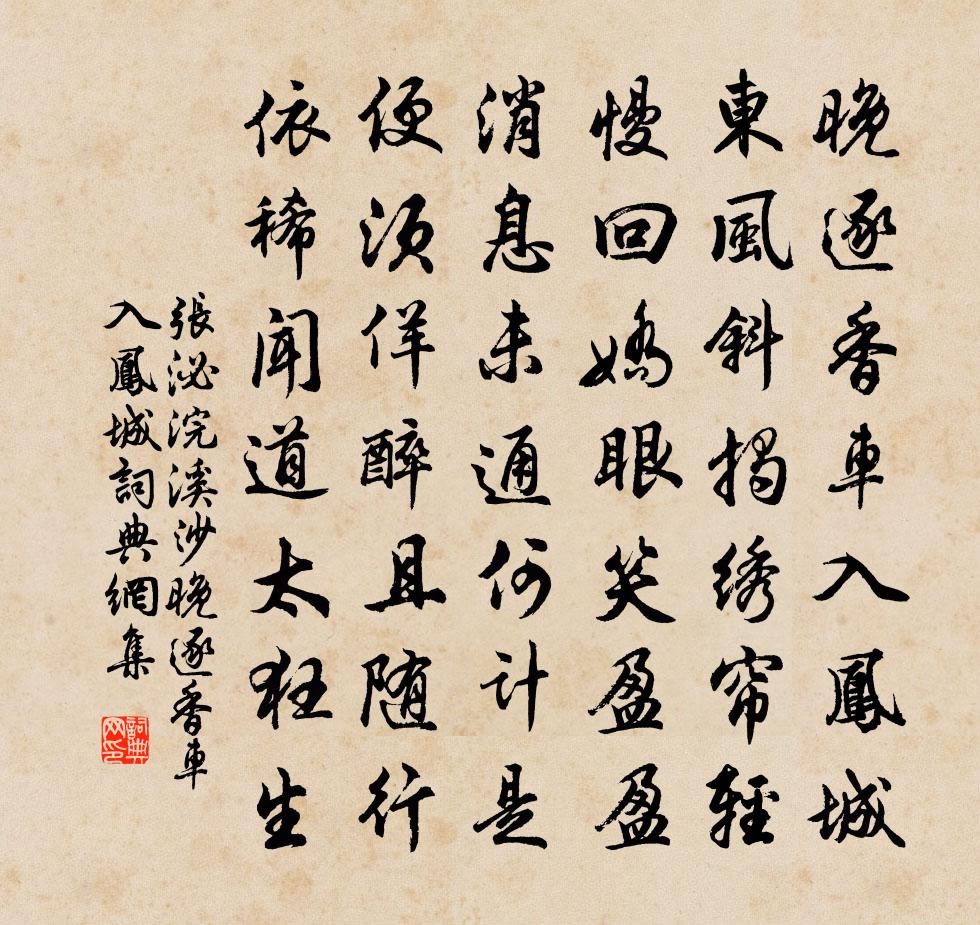 晚逐香車入鳳城
東風斜揭綉帘輕
慢回嬌眼笑盈盈
消息未通何計是
便須佯醉且随行
依稀聞道太狂生
張泌浣溪沙晚逐香車
入鳳城詞典網集
詞典网印